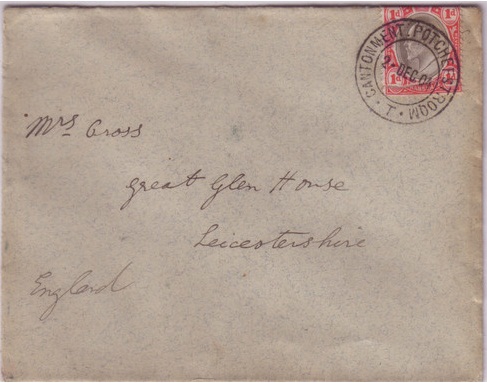 1d 1d
CANTONMENT (POTCHEFSTROOM)
2 DEC 04
T
1d
Mrs Cross
Great Glen House
Leicestershire
England